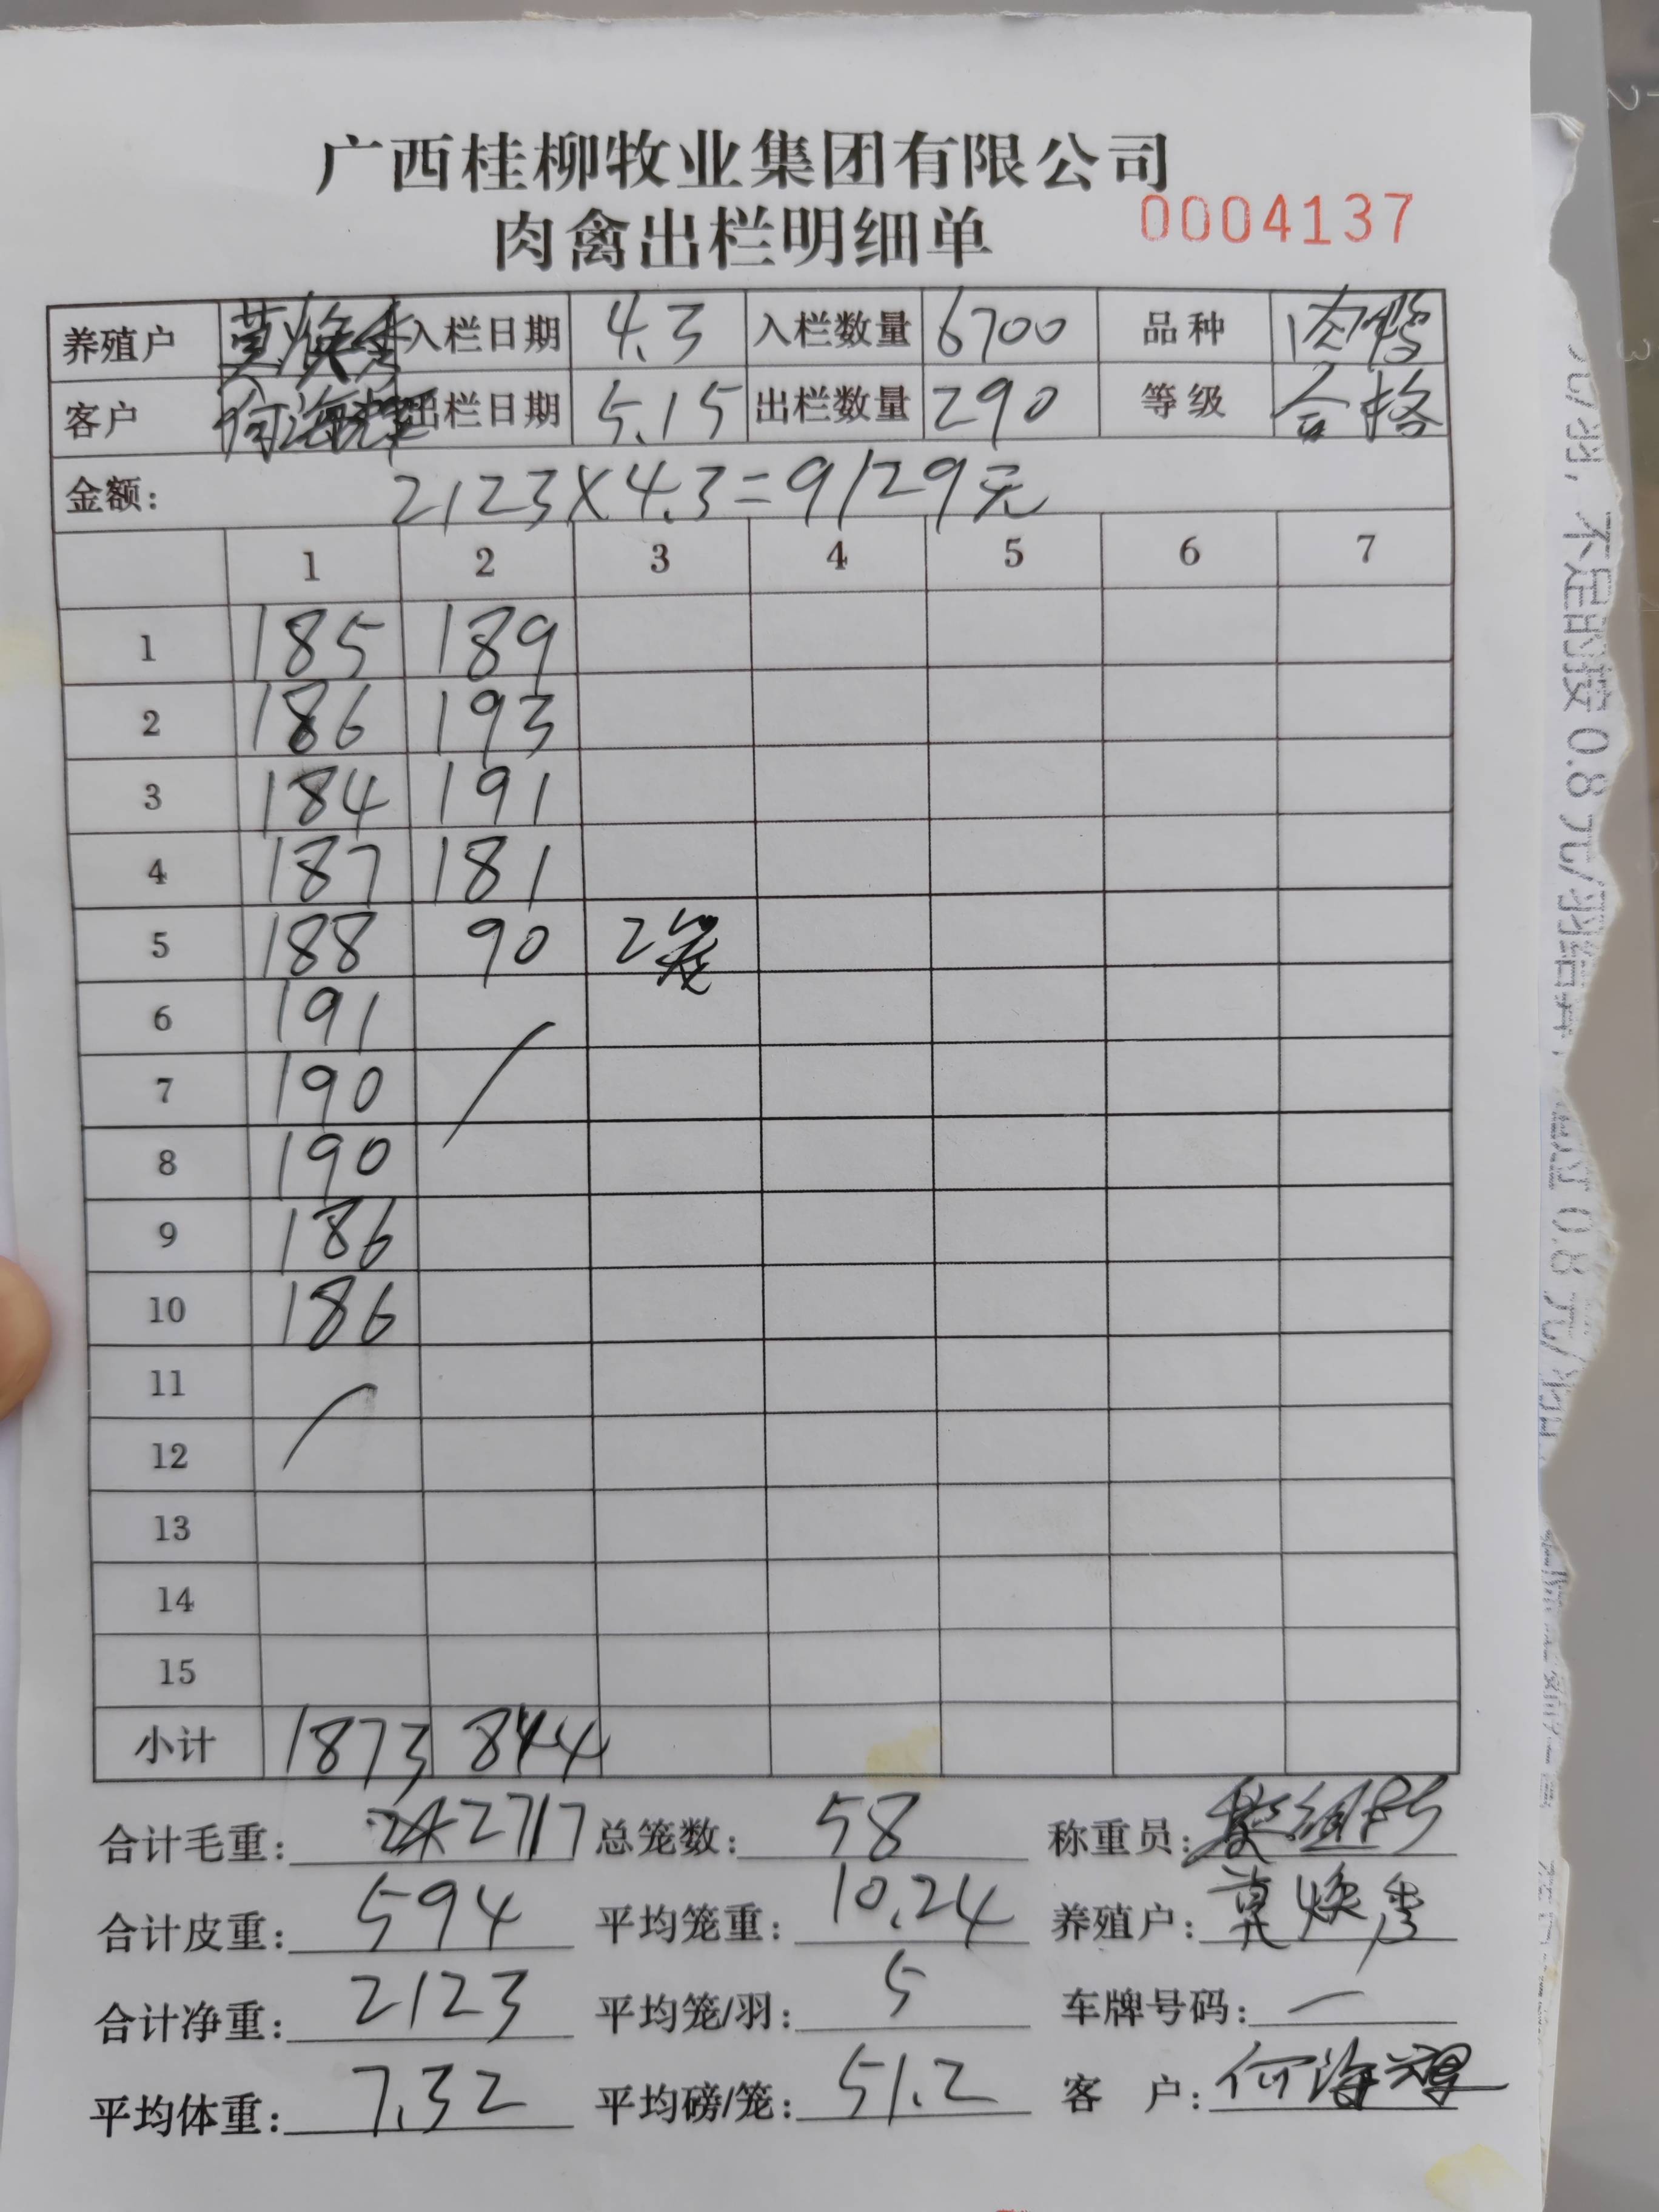 广西桂柳牧业集团有限公司
肉禽出栏明细单 0004137
养殖户 莫焕 入栏日期 4.3 入栏数量 6700 品种 肉鸭
客户 何海 出栏日期 5.15 出栏数量 290 等级 合格
金额: 2123×4.3=9129元
1 2 3 4 5 6 7
1 185 189
2 186 193
3 184 191
4 187 181
5 188 90 2笼
6 191
7 190
8 190
9 186
10 186
11
12
13
14
15
小计 1873 844
合计毛重: 2717 总笼数: 58 称重员:
合计皮重: 594 平均笼重: 10.24 养殖户: 莫焕
合计净重: 2123 平均笼/羽: 5 车牌号码: 一
平均体重: 7.32 平均磅/笼: 51.2 客 户: 何海
不足的按 0.8 元/羽
0.8 元/